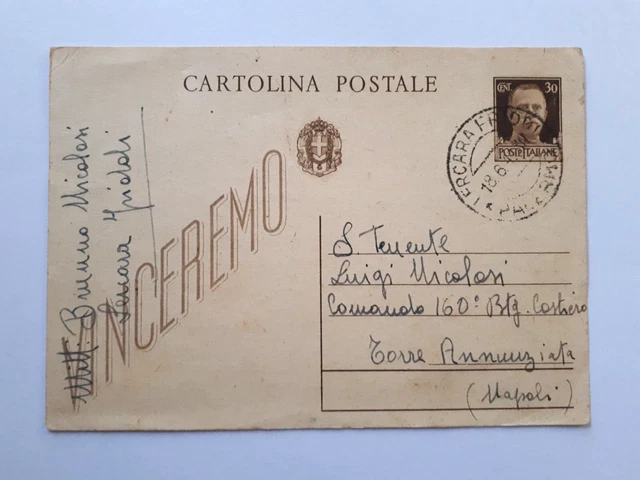 CARTOLINA POSTALE
CENT. 30
POSTE ITALIANE
LERCARA FRIDDI
18.6
PALERMO
VINCEREMO
Mitt. Bruno Nicolosi
Lercara Friddi
S. Tenente
Luigi Nicolosi
Comando 160° Btg. Costiero
Torre Annunziata
(Napoli)